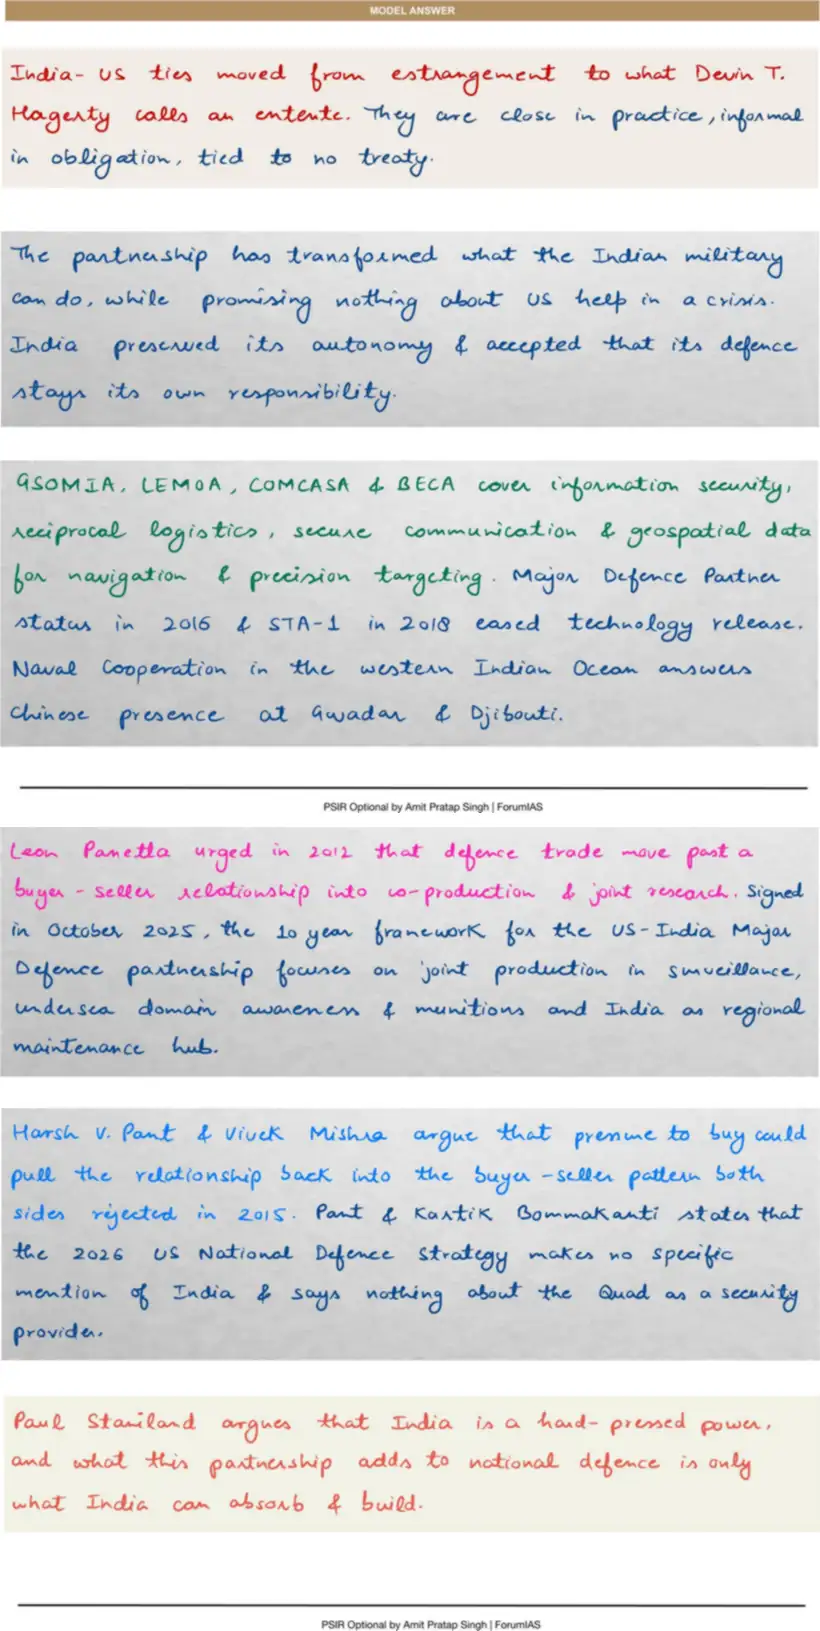 MODEL ANSWER
India-US ties moved from estrangement to what Devin T.
Hagerty calls an entente. They are close in practice, informal
in obligation, tied to no treaty.
The partnership has transformed what the Indian military
can do, while promising nothing about US help in a crisis.
India preserved its autonomy & accepted that its defence
stays its own responsibility.
GSOMIA, LEMOA, COMCASA & BECA cover information security,
reciprocal logistics, secure communication & geospatial data
for navigation & precision targeting. Major Defence Partner
status in 2016 & STA-1 in 2018 eased technology release.
Naval Cooperation in the western Indian Ocean answers
Chinese presence at Gwadar & Djibouti.
PSIR Optional by Amit Pratap Singh | ForumIAS
Leon Panetta urged in 2012 that defence trade move past a
buyer-seller relationship into co-production & joint research. Signed
in October 2025, the 10 year framework for the US-India Major
Defence partnership focuses on joint production in surveillance,
undersea domain awareness & munitions and India as regional
maintenance hub.
Harsh V. Pant & Vivek Mishra argue that pressure to buy could
pull the relationship back into the buyer-seller pattern both
sides rejected in 2015. Pant & Kartik Bommakanti states that
the 2026 US National Defence Strategy makes no specific
mention of India & says nothing about the Quad as a security
provider.
Paul Staniland argues that India is a hard-pressed power,
and what this partnership adds to national defence is only
what India can absorb & build.
PSIR Optional by Amit Pratap Singh | ForumIAS